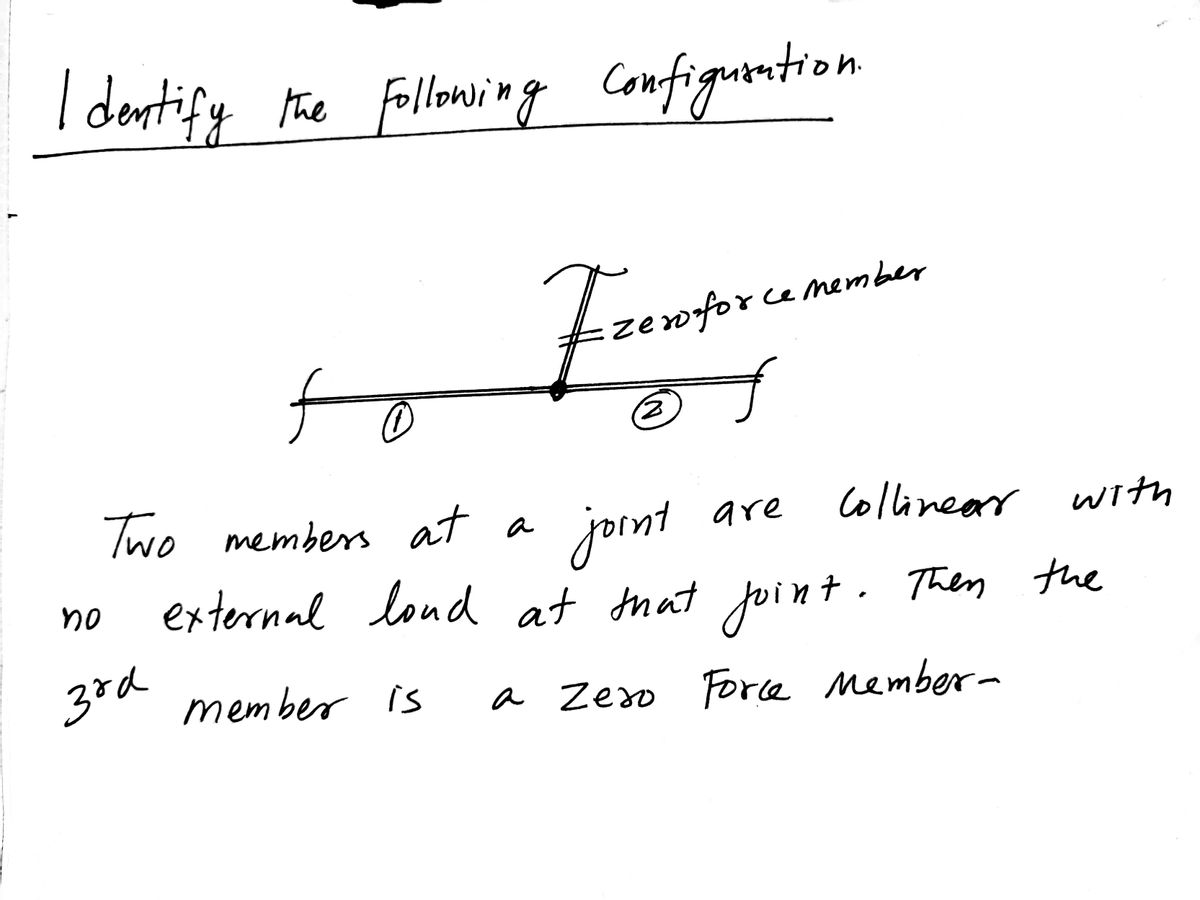 Identify the Following Configuration.
zero-force member
1
2
Two members at a joint are Collinear with
no external load at that joint. Then the
3rd member is a Zero Force Member-